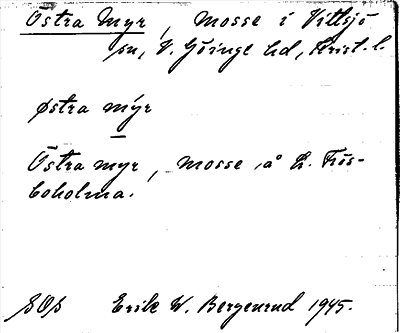 Östra Myr, Mosse i Vittsjö
sn, V. Göinge hd, Krist. l.
østra mýr
Östra myr, mosse å L. Frös-
boholma.
SOS Erik W. Bergenrud 1945.